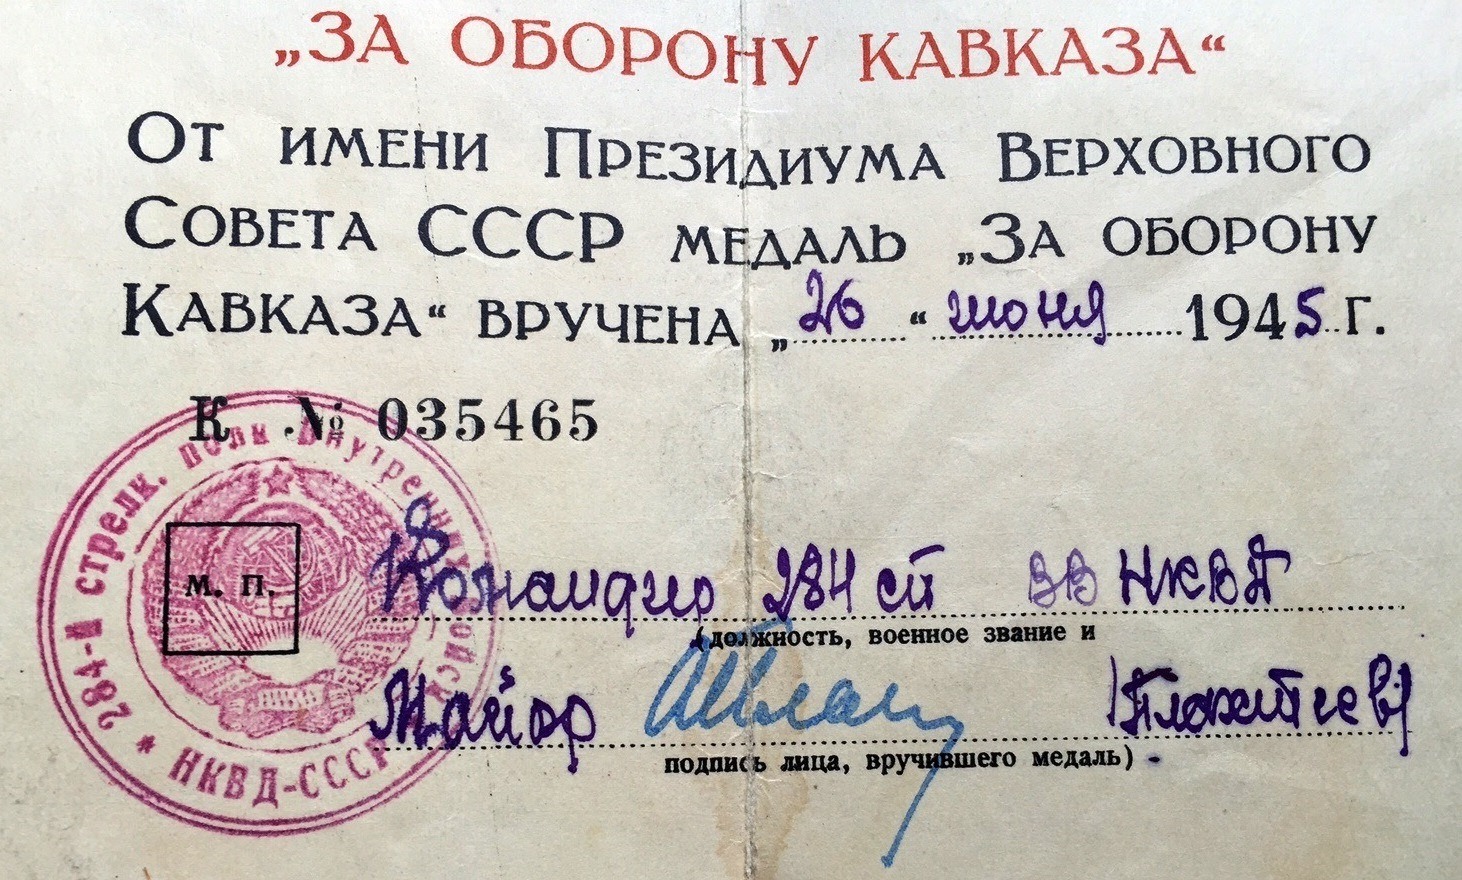 „ЗА ОБОРОНУ КАВКАЗА“
От имени Президиума Верховного
Совета СССР медаль „За оборону
Кавказа“ вручена „26“ июня 1945 г.
К № 035465
284-й стрелк. полк Внутренних войск
* НКВД-СССР
М. П.
Командир 284 сп ВВ НКВД
(должность, военное звание и
Майор
подпись лица, вручившего медаль)